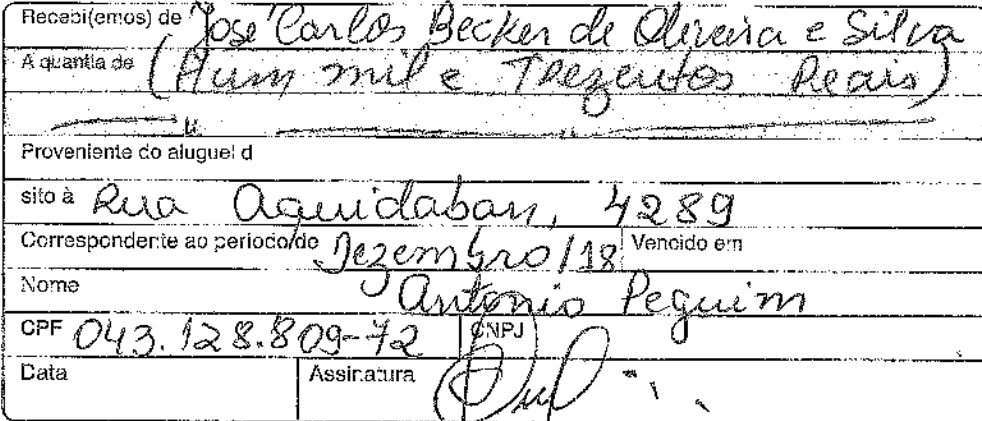 Recebi(emos) de José Carlos Becker de Oliveira e Silva
A quantia de (Hum mil e Trezentos Reais)
Proveniente do aluguel d
sito à Rua Aquidaban, 4289
Correspondente ao período de Dezembro/18 Vencido em
Nome Antonio Peguim
CPF 043.128.809-72 CNPJ
Data Assinatura